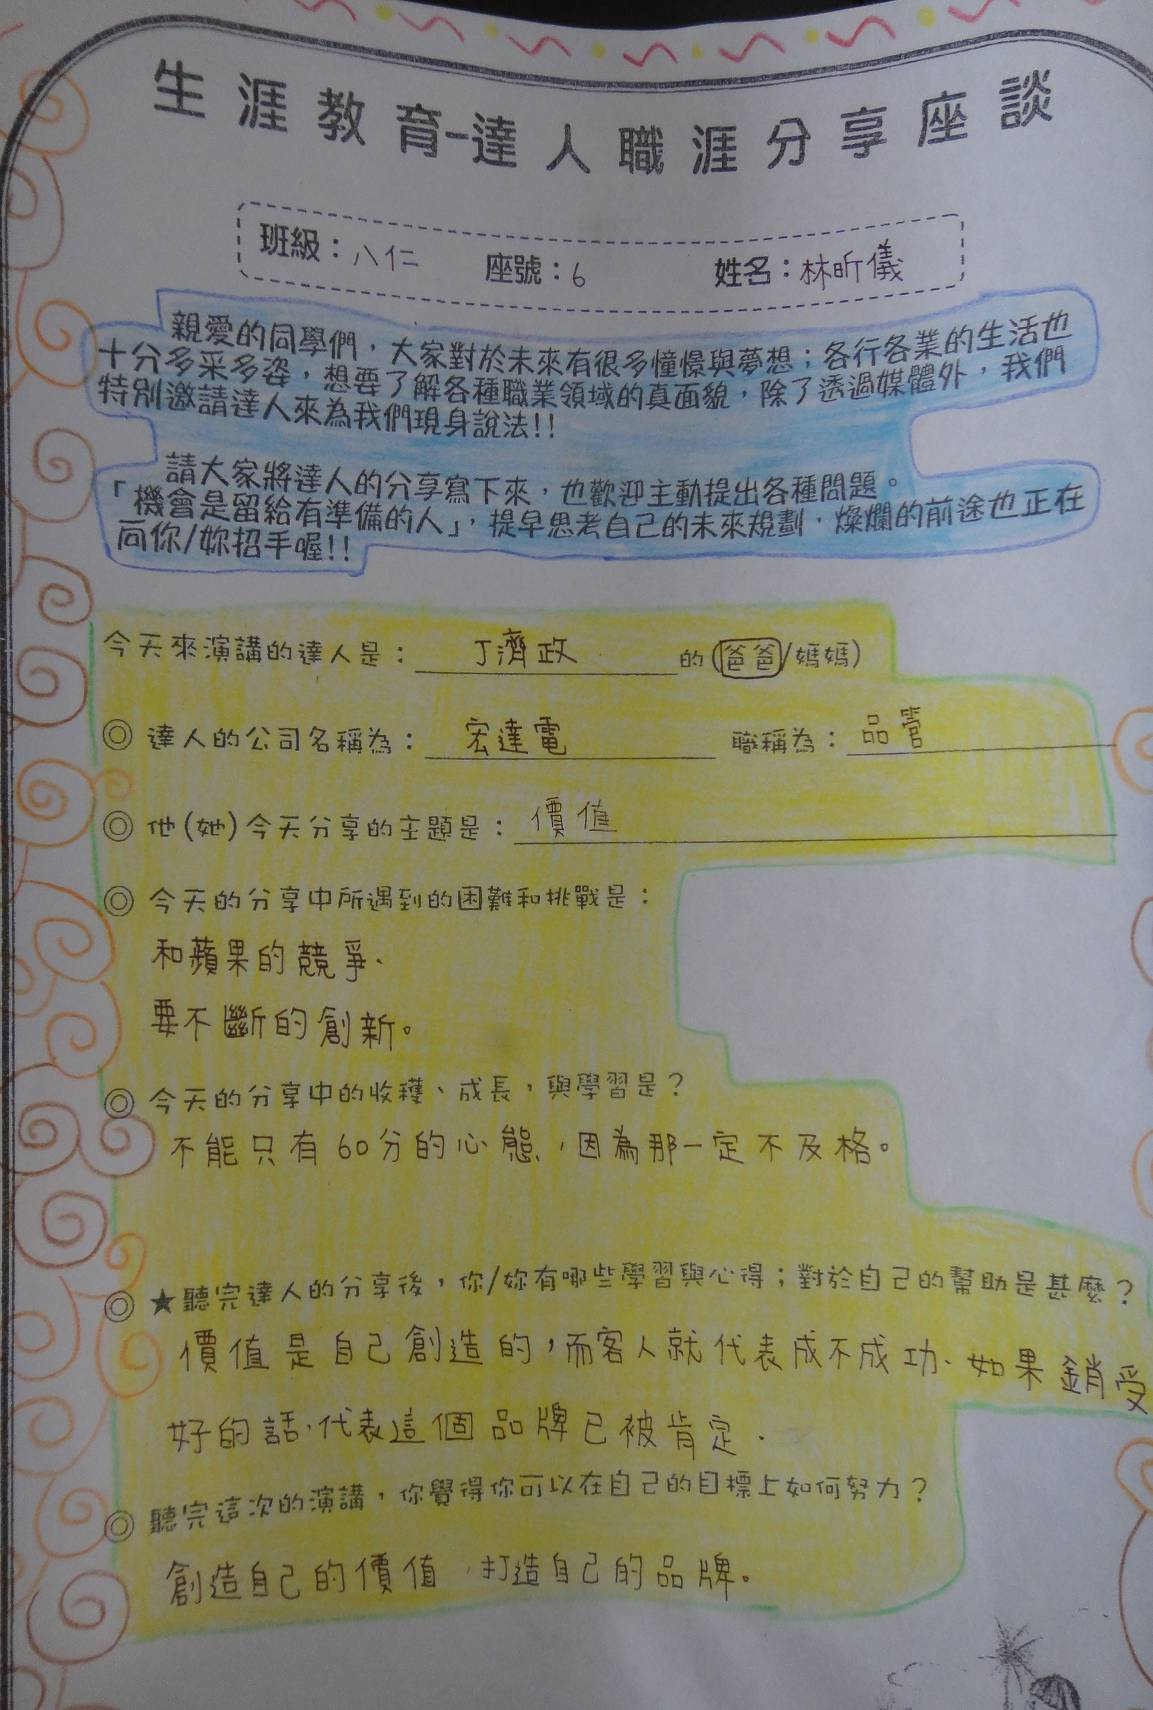 生涯教育-達人職涯分享座談
班級：八仁 座號：6 姓名：林昕儀
親愛的同學們，大家對於未來有很多憧憬與夢想；各行各業的生活也
十分多采多姿，想要了解各種職業領域的真面貌，除了透過媒體外，我們
特別邀請達人來為我們現身說法!!
請大家將達人的分享寫下來，也歡迎主動提出各種問題。
「機會是留給有準備的人」，提早思考自己的未來規劃，燦爛的前途也正在
向你/妳招手喔!!
今天來演講的達人是：丁濟政 的(爸爸/媽媽)
◎ 達人的公司名稱為：宏達電 職稱為：品管
◎ 他(她)今天分享的主題是：價值
◎ 今天的分享中所遇到的困難和挑戰是：
和蘋果的競爭、
要不斷的創新。
◎ 今天的分享中的收穫、成長，與學習是？
不能只有60分的心態，因為那一定不及格。
◎ ★聽完達人的分享後，你/妳有哪些學習與心得；對於自己的幫助是甚麼？
價值是自己創造的，而客人就代表成不成功、如果銷受
好的話、代表這個品牌已被肯定．
◎ 聽完這次的演講，你覺得你可以在自己的目標上如何努力？
創造自己的價值，打造自己的品牌。